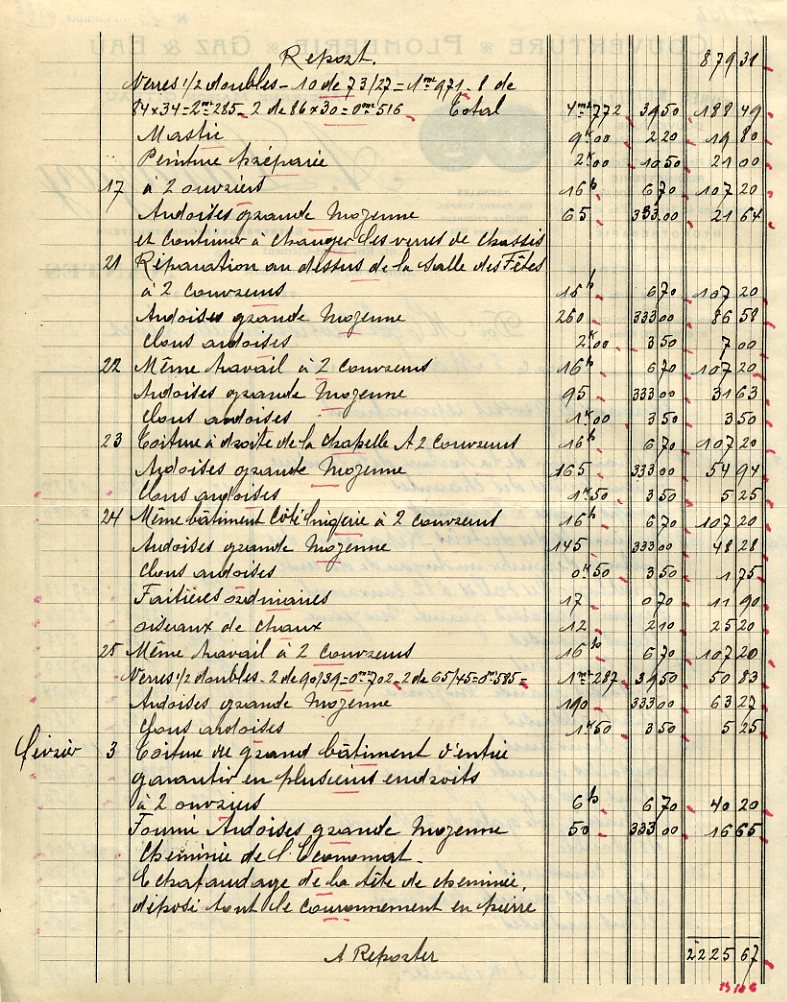 Report. 879 31
Verres 1/2 doubles - 10 de 73/27 = 1mt 971 - 8 de
84 x 34 = 2mt 285 - 2 de 86 x 30 = 0mt 516 Total 4mt 772 39 50 188 49
Mastic 9k 00 2 20 19 80
Peinture préparée 2k 00 10 50 21 00
17 à 2 ouvriers 16h 6 70 107 20
Ardoises grande Moyenne 65 333.00 21 64
et continuer à changer les verres de chassis
21 Réparation au dessus de la Salle des Fêtes
à 2 couvreurs 16h 6 70 107 20
Ardoises grande Moyenne 260 333 00 86 58
Clous ardoises 2k 00 3 50 7 00
22 Même travail à 2 couvreurs 16h 6 70 107 20
Ardoises grande Moyenne 95 333 00 31 63
Clous ardoises 1k 00 3 50 3 50
23 Toiture à droite de la chapelle A 2 couvreurs 16h 6 70 107 20
Ardoises grande Moyenne 165 333 00 54 94
Clous ardoises 1k 50 3 50 5 25
24 Même bâtiment côté lingerie à 2 couvreurs 16h 6 70 107 20
Ardoises grande Moyenne 145 333 00 48 28
Clous ardoises 0k 50 3 50 1 75
Faitières ordinaires 17 0 70 11 90
oiseaux de chaux 12 2 10 25 20
25 Même travail à 2 couvreurs 16h 6 70 107 20
Verres 1/2 doubles - 2 de 90/39 = 0mt 702 - 2 de 65/45 = 0mt 585 = 1mt 287 39 50 50 83
Ardoises grande Moyenne 190 333 00 63 27
Clous ardoises 1k 50 3 50 5 25
février 3 Toiture du grand bâtiment d'entrée
garantir en plusieurs endroits
à 2 ouvriers 6h 6 70 40 20
Fourni Ardoises grande Moyenne 50 333 00 16 65
Cheminée de l'Economat.
Echafaudage de la tête de cheminée,
déposé tout le couronnement en pierre
A Reporter 2225 67